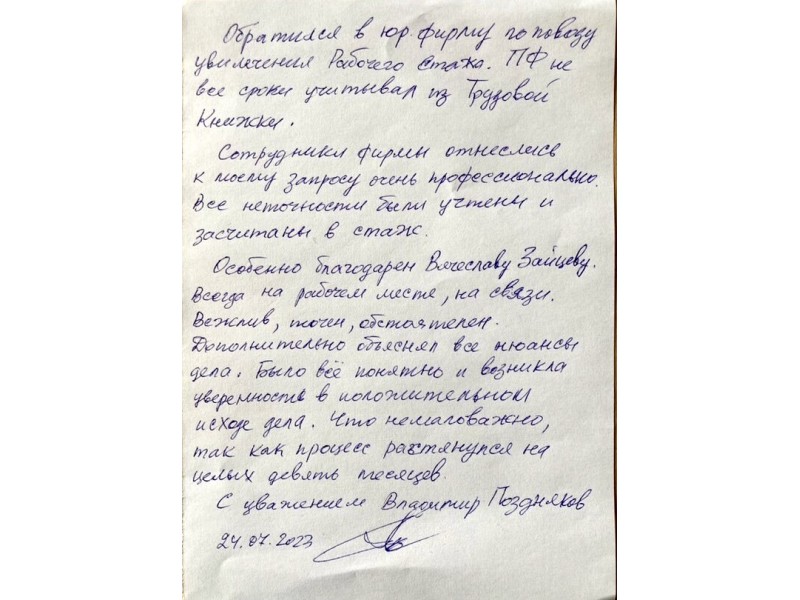 Обратился в юр. фирму по поводу
увилечения Рабочего стажа. ПФ не
все сроки учитывал из Трудовой
Книжки.
Сотрудники фирмы отнеслись
к моему запросу очень профессионально.
Все неточности были учтены и
засчитаны в стаж.
Особенно благодарен Вячеславу Зайцеву.
Всегда на рабочем месте, на связи.
Вежлив, точен, обстоятелен.
Дополнительно объяснял все нюансы
дела. Было всё понятно и возникла
уверенность в положительном
исходе дела. Что немаловажно,
так как процесс растянулся на
целых девять месяцев.
С уважением Владимир Поздняков
24.07.2023